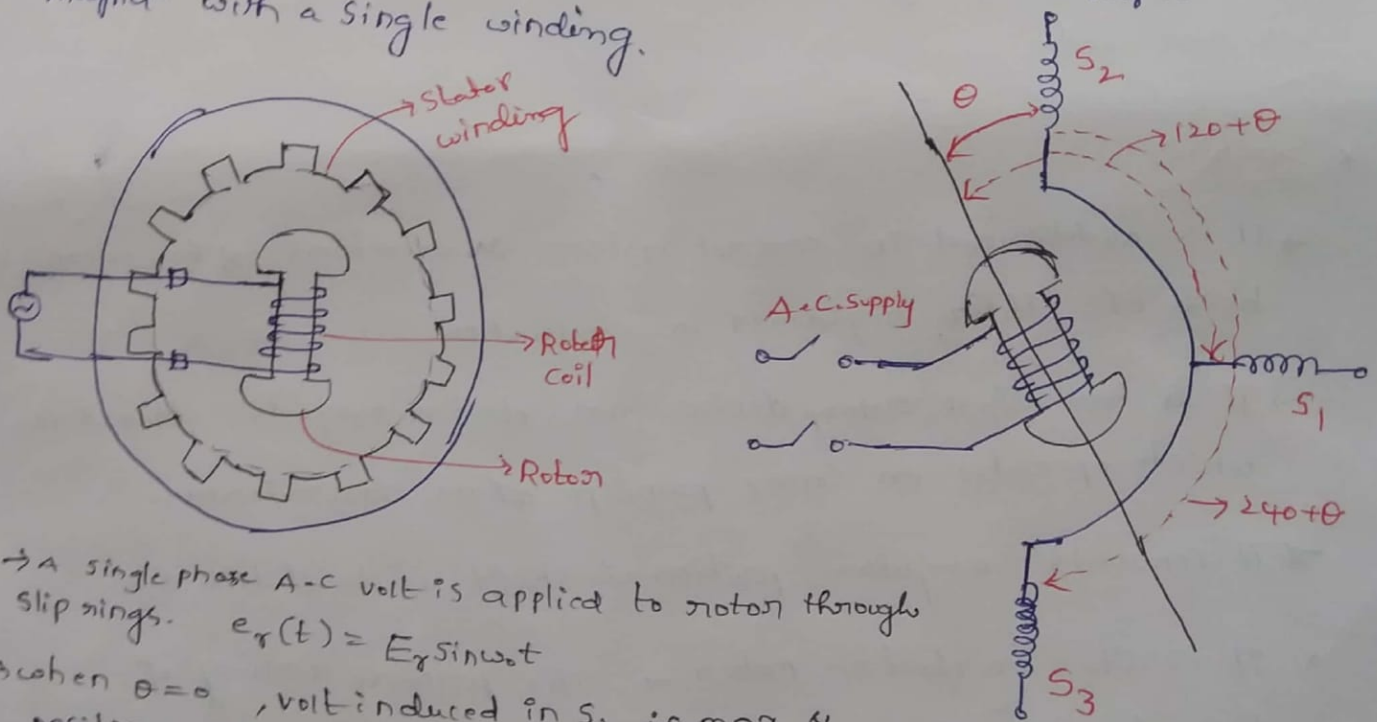 with a single winding.
Stator
winding
Rotor
coil
Rotor
S2
θ
120+θ
A.C. Supply
S1
240+θ
S3
→ A single phase A-C volt is applied to rotor through
slip rings. er(t) = Er sinω0t
when θ=0, volt induced in S